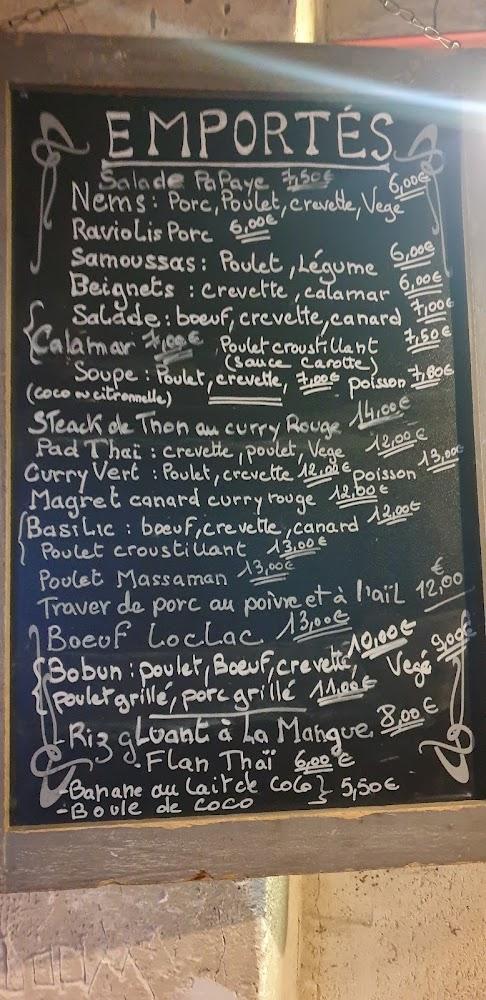 EMPORTÉS
Salade Papaye 7,50€
Nems : Porc, Poulet, crevette, Vegé 6,00€
Raviolis Porc 6,00€
Samoussas : Poulet, Légume 6,00€
Beignets : crevette, calamar 6,00€
Salade : bœuf, crevette, canard 7,00€
Calamar 7,00€ Poulet croustillant 7,50€
(sauce carotte)
Soupe : Poulet, crevette, 7,00€ poisson 7,80€
(coco ou citronnelle)
Steack de Thon au curry Rouge 14,00€
Pad Thaï : crevette, poulet, Vege 12,00€
Curry Vert : Poulet, crevette 12,00€ poisson 13,00€
Magret canard curry rouge 12,00€
Basilic : bœuf, crevette, canard 12,00€
Poulet croustillant 13,00€
Poulet Massaman 13,00€
Traver de porc au poivre et à l'aïl 12,00€
Boeuf LocLac 13,00€
Bobun : poulet, Bœuf, crevette, 10,00€ Vegé 9,00€
poulet grillé, porc grillé 11,00€
-Riz gluant à La Mangue 8,00€
-Flan Thaï 6,00€
-Banane au Lait de CoCo } 5,50€
-Boule de coco